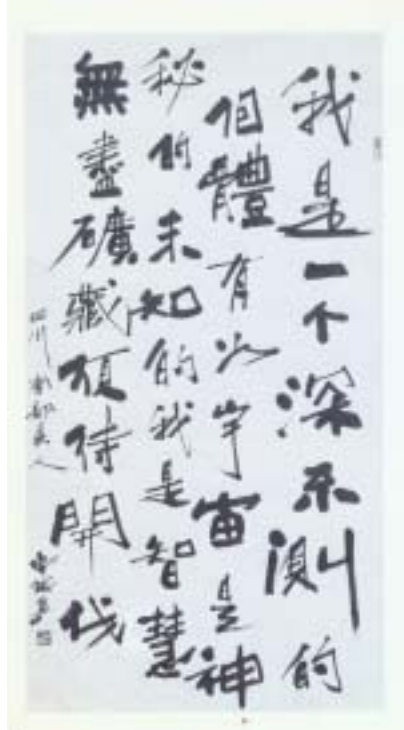 我是一个深不测的
個體有如宇宙是神
秘的未知的我是智慧
無盡礦藏須待開伐
四川
人